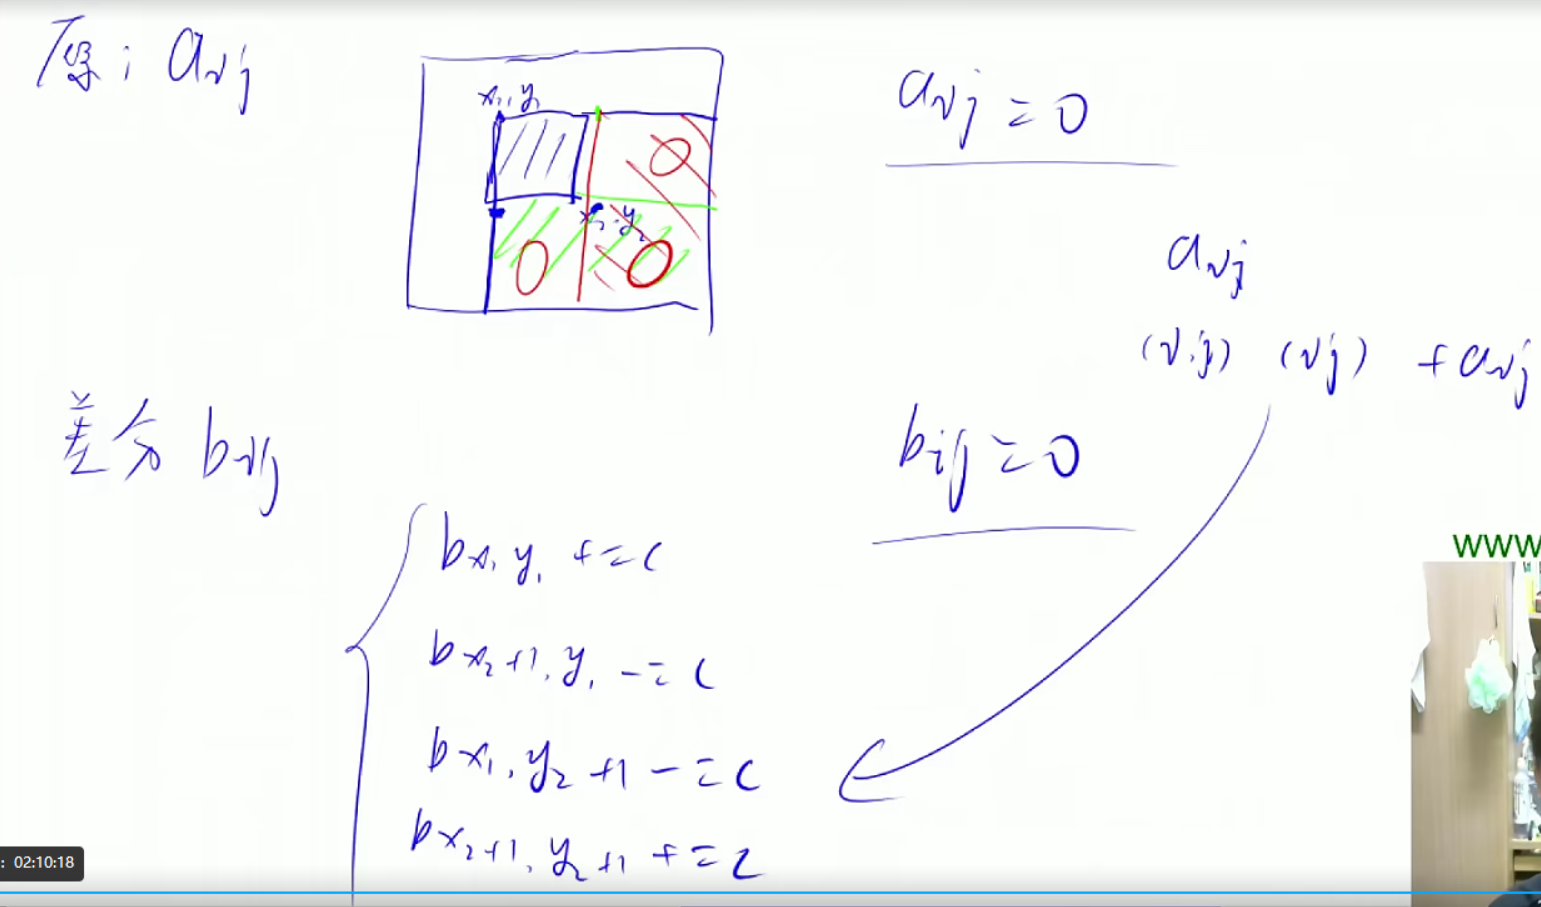 原: aij
x1, y1
x2, y2
0
0 0
aij = 0
aij
(i,j) (ij) +aij
差分 bij
bij = 0
bx1 y1 += c
bx2+1, y1 -= c
bx1, y2+1 -= c
bx2+1, y2+1 += c
www
: 02:10:18